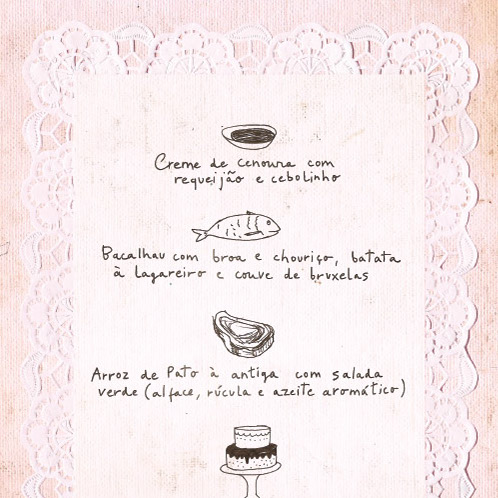 Creme de cenoura com
requeijão e cebolinho
Bacalhau com broa e chouriço, batata
à lagareiro e couve de bruxelas
Arroz de Pato à antiga com salada
verde (alface, rúcula e azeite aromático)